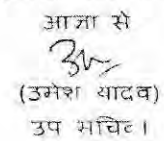 आज्ञा से
(उमेश यादव)
उप सचिव।